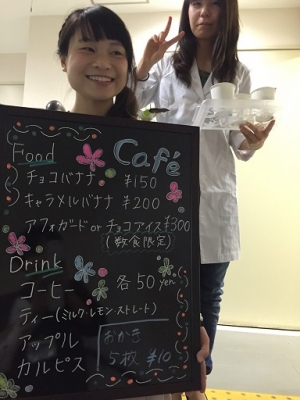 Café
Food
チョコバナナ ¥150
キャラメルバナナ ¥200
アフォガード or チョコアイス ¥300
(数食限定)
Drink
コーヒー 各50yen
ティー(ミルク・レモン・ストレート)
アップル
カルピス
おかき
5枚 ¥10